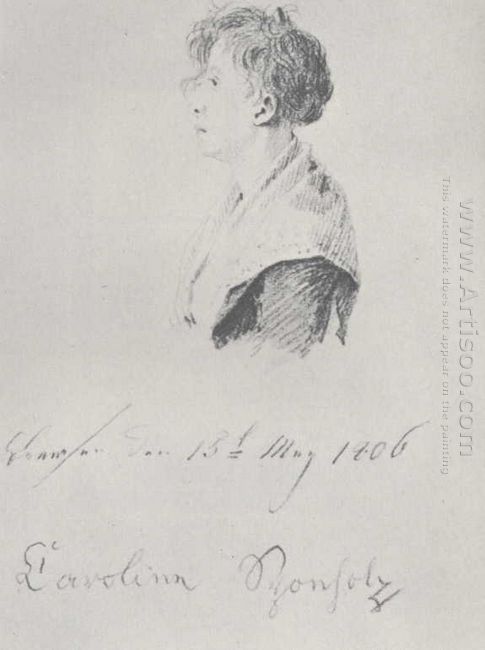 Breesen den 13t May 1806
Caroline Sponholz
www.Artisoo.com
This watermark does not appear on the painting